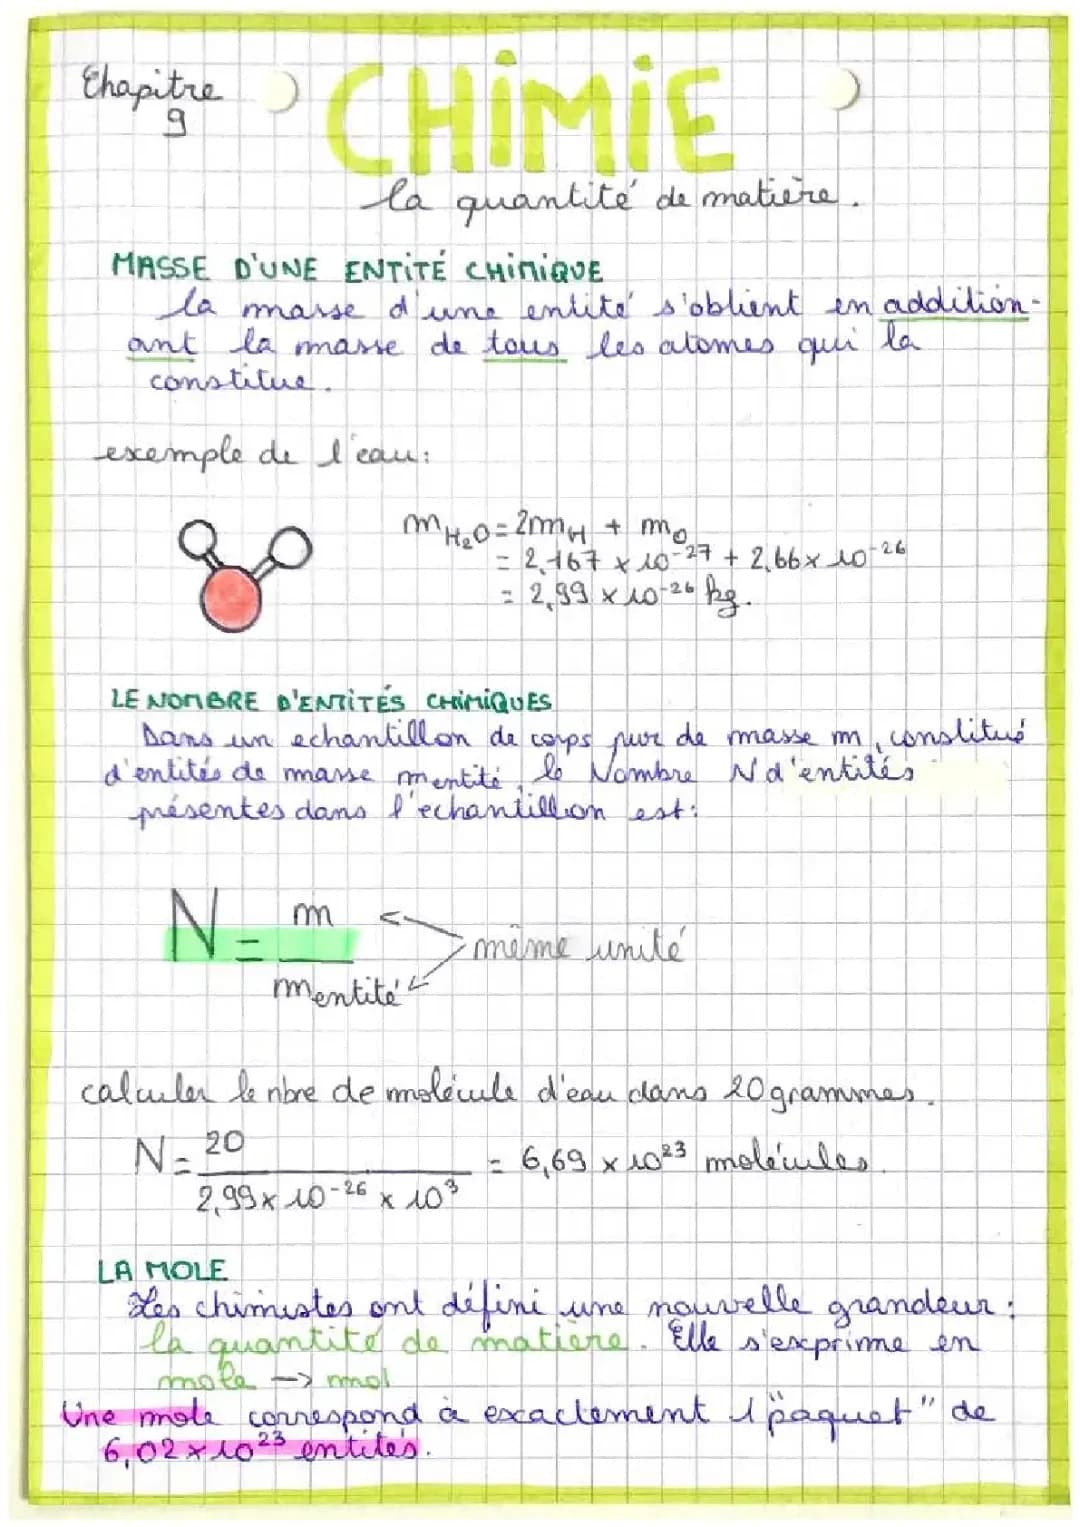 Chapitre
9
CHiMiE
la quantité de matière.
MASSE D'UNE ENTiTÉ CHiMiQUE
la masse d'une entité s'obtient en addition-
ant la masse de tous les atomes qui la
constitue.
exemple de l'eau:
m H₂O = 2mH + mO
= 2,167 × 10⁻²⁷ + 2,66 × 10⁻²⁶
= 2,99 × 10⁻²⁶ kg.
LE NOMBRE D'ENTiTÉS CHiMiQUES
Dans un echantillon de corps pur de masse m, constitué
d'entités de masse mentité, le Nombre N d'entités
présentes dans l'echantillon est:
N = m / mentité
même unité
calculer le nbre de molécule d'eau dans 20 grammes.
N = 20 / 2,99 × 10⁻²⁶ × 10³ = 6,69 × 10²³ molécules.
LA MOLE
Les chimistes ont défini une nouvelle grandeur:
la quantité de matière. Elle s'exprime en
mole → mol
Une mole correspond à exactement 1 "paquet" de
6,02 × 10²³ entités.